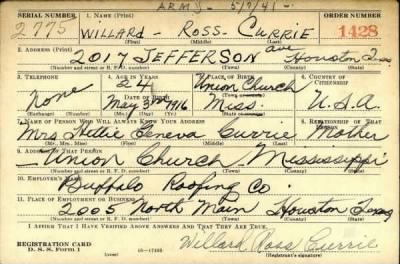 ARMY - 5/7/41 -
SERIAL NUMBER 1. NAME (Print) ORDER NUMBER
2775 WILLARD - ROSS - CURRIE 1428
(First) (Middle) (Last)
2. ADDRESS (Print)
2017 JEFFERSON ave Houston Texas
(Number and street or R. F. D. number) (Town) (County) (State)
3. TELEPHONE 4. AGE IN YEARS 5. PLACE OF BIRTH 6. COUNTRY OF CITIZENSHIP
24 Union Church
none DATE OF BIRTH (Town or county)
May 3rd 1916 Miss. U.S.A
(Exchange) (Number) (Mo.) (Day) (Yr.) (State or country)
7. NAME OF PERSON WHO WILL ALWAYS KNOW YOUR ADDRESS 8. RELATIONSHIP OF THAT PERSON
Mrs Geneva Currie Mother
(Mr., Mrs., Miss) (First) (Middle) (Last)
9. ADDRESS OF THAT PERSON
Union Church Mississippi
(Number and street or R. F. D. number) (Town) (County) (State)
10. EMPLOYER'S NAME
Buffalo Roofing Co.
11. PLACE OF EMPLOYMENT OR BUSINESS
2005 North Main Houston Texas
(Number and street or R. F. D. number) (Town) (County) (State)
I AFFIRM THAT I HAVE VERIFIED ABOVE ANSWERS AND THAT THEY ARE TRUE.
REGISTRATION CARD Willard Ross Currie
D. S. S. FORM 1 (over) (Registrant's signature)